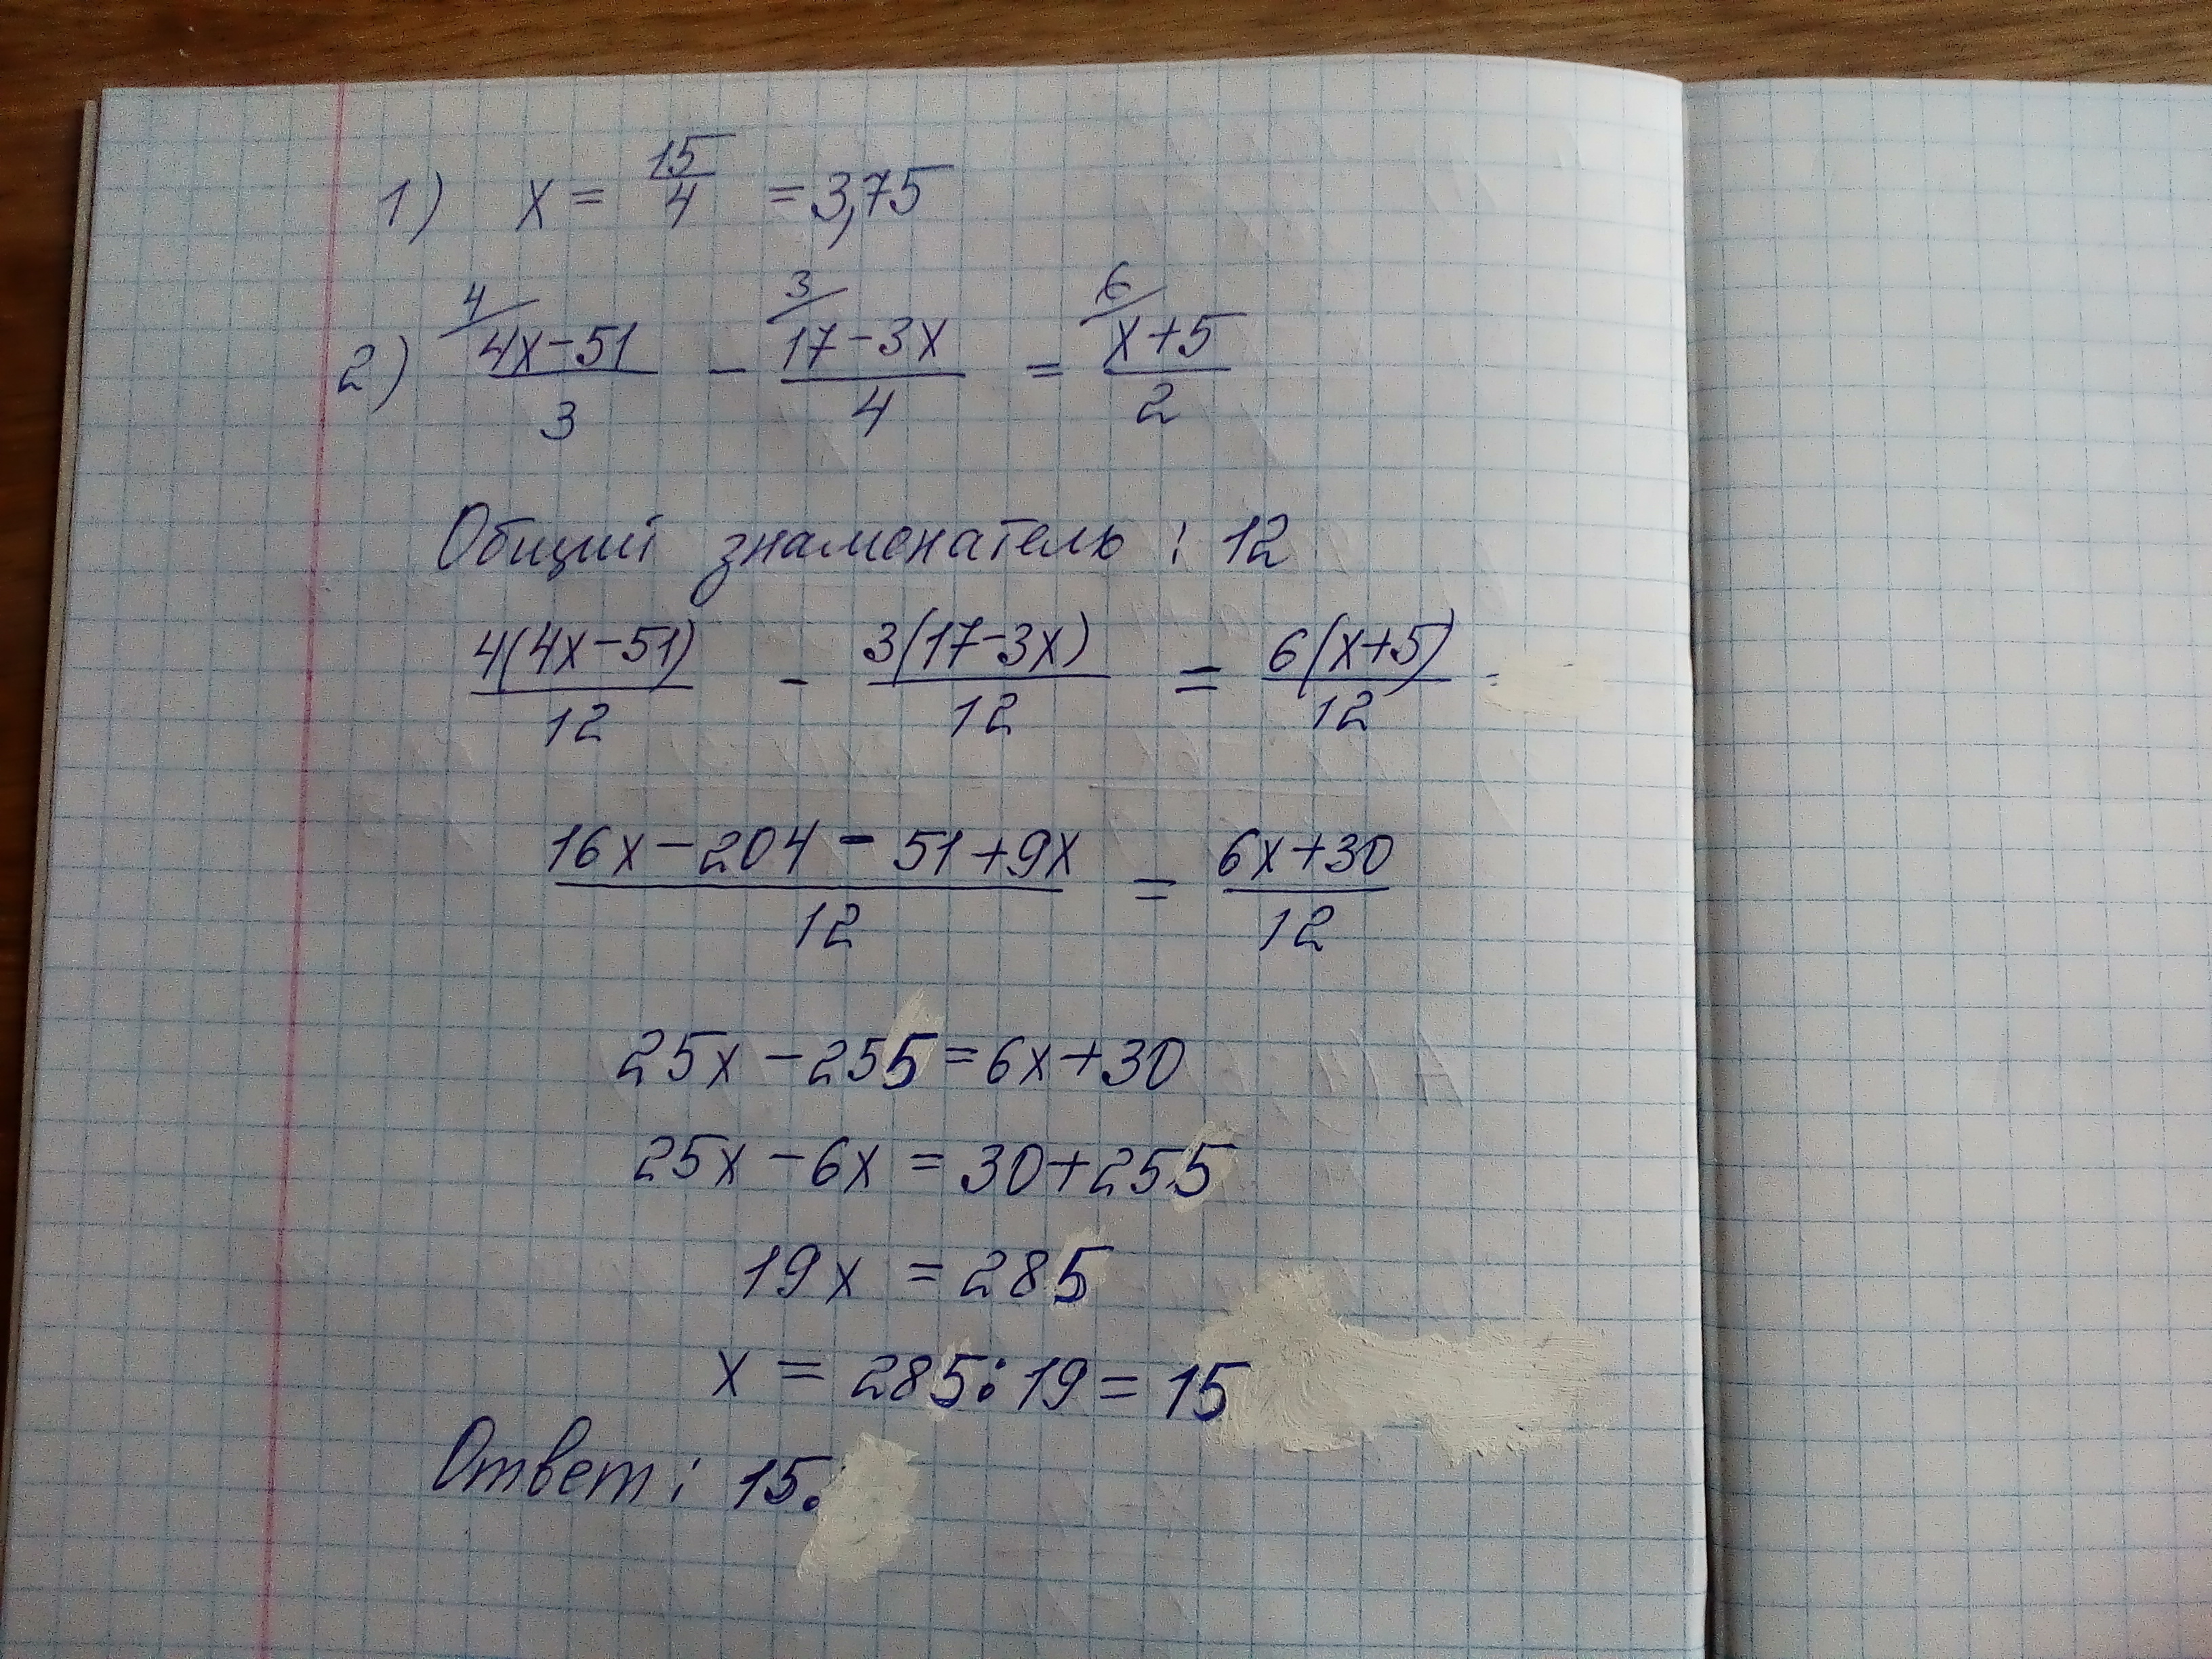 1) x = 15/4 = 3,75
2) 4/ (4x-51)/3 - 3/ (17-3x)/4 = 6/ (x+5)/2
Общий знаменатель: 12
4(4x-51)/12 - 3(17-3x)/12 = 6(x+5)/12
(16x-204-51+9x)/12 = (6x+30)/12
25x-255=6x+30
25x-6x=30+255
19x=285
x=285:19=15
Ответ: 15.